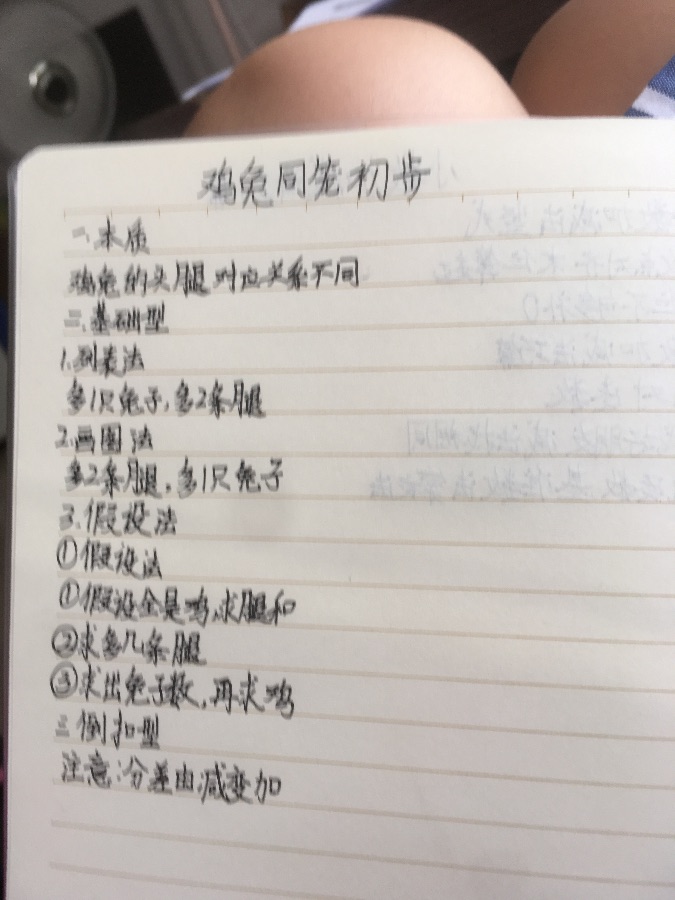 鸡兔同笼初步
一、本质
鸡兔的头腿对应关系不同
二、基础型
1.列表法
多1只兔子,多2条腿
2.画图法
多2条腿,多1只兔子
3.假设法
①假设法
①假设全是鸡,求腿和
②求多几条腿
③求出兔子数,再求鸡
三倒扣型
注意:分差由减变加